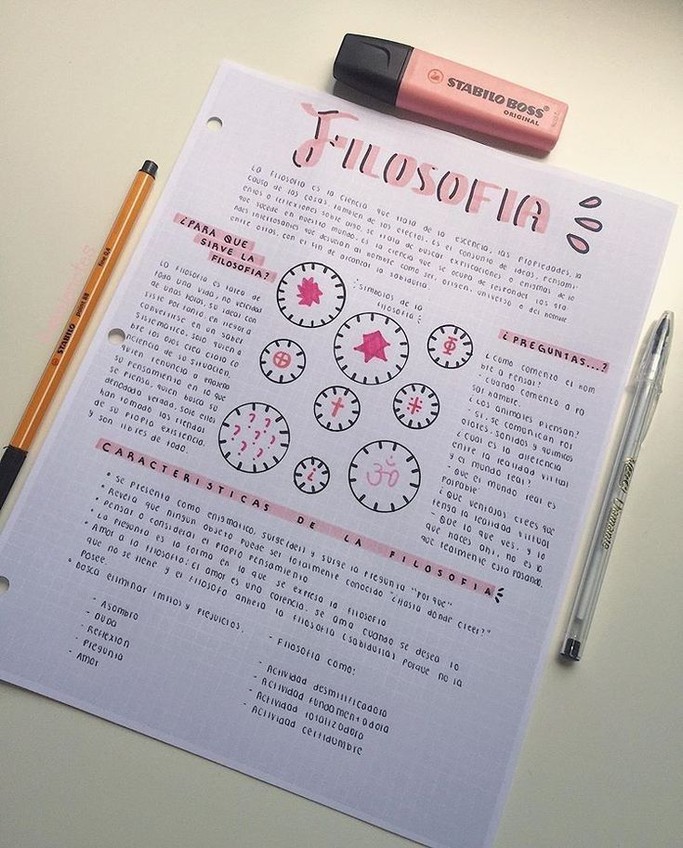 STABILO BOSS
ORIGINAL
FILOSOFIA
LA FILOSOFIA ES LA CIENCIA QUE TRATA DE LA ESENCIA, LAS PROPIEDADES, LA
CAUSA DE LAS COSAS, TAMBIEN DE LOS EFECTOS; ES EN CONJUNTO DE IDEAS, PENSAMI-
ENTOS O REFLEXIONES SOBRE ALGO, SE TRATA DE BUSCAR EXPLICACIONES O ENIGMAS DE LO
QUE SUCEDE EN NUESTRO MUNDO. ES LA CIENCIA QUE SE OCUPA DE RESPONDER LOS GRA-
DES INTERROGANTES QUE DESVELAN AL HOMBRE COMO SER: ORIGEN, UNIVERSO O DEL HOMBRE
ENTRE OTROS, CON EL FIN DE ALCANZAR LA SABIDURIA
¿PARA QUE
SIRVE LA
FILOSOFIA?
LA FILOSOFIA ES TAREA DE
TODA UNA VIDA, NO VERDAD
DE UNAS HOJAS, SU IDEAL CON
SISTE POR TANTO, EN
CONVERTIRSE EN UN SABER
SISTEMATICO, SOLO QUIEN A
BRE LOS OJOS CREA CLARA CO
NCIENCIA DE SU SITUACION,
QUIEN RENUNCIO A
SU PENSAMIENTO EN LO QUE
SE PIENSA, QUIEN BUSCA SU
VERDAD, SOLO ELLOS
HAN TOMADO LAS RIENDAS
DE SU PROPIA EXISTENCIA.
Y SON LIBRES DE TODO.
SIMBOLOS DE LA
FILOSOFIA:
Φ
? ? ? ? ? ? ? ?
¿
ॐ
¿PREGUNTAS...?
¿COMO COMENZO EL HOM
BRE A PENSAR?
- CUANDO COMENZO A RA
SER HOMBRE.
¿LOS ANIMALES PIENSAN?
- SI, SE COMUNICAN POR
OLORES SONIDOS Y QUIMICOS
¿CUAL ES LA DIFERENCIA
ENTRE LA REALIDAD VIRTUAL
Y LA MUNDO REAL?
- QUE EL MUNDO REAL ES
PALPABLE
¿QUE VENTAJAS CREES QUE
TENGA LA REALIDAD VIRTUAL
- QUE LO QUE VES, Y LO
QUE HACES AHI, NO ES LO
QUE REALMENTE ESTA PASANDO.
CARACTERISTICAS DE LA FILOSOFIA
* SE PRESENTA COMO ENIGMATICO, SURGE(DEL) Y SURGE LA PREGUNTA "POR QUE"
* REVELA QUE NINGUN OBJETO PUEDE SER TOTALMENTE CONOCIDO "¿HASTA DONDE CREER?"
* PENSAR O CONSIDERAR EL PROPIO PENSAMIENTO
* LA PREGUNTA ES LA FORMA EN LA QUE SE EXPRESA LA FILOSOFIA
* AMOR A LA FILOSOFIA: EL AMOR ES UNA CARENCIA, SE AMA CUANDO SE DESEA LO
QUE NO SE TIENE Y EL FILOSOFO ANHELA LA FILOSOFIA (SABIDURIA) PORQUE NO LA
POSEE.
* BUSCA ELIMINAR LIMITES Y PREJUICIOS.
- ASOMBRO
- DUDA
- REFLEXION
- PREGUNTA
- AMOR
- FILOSOFIA COMO:
- ACTIVIDAD DESMITIFICADORA
- ACTIVIDAD FUNDAMENTADORA
- ACTIVIDAD TOTALIZADORA
- ACTIVIDAD CERTIDUMBRE
STABILO point 88 fine 0,4